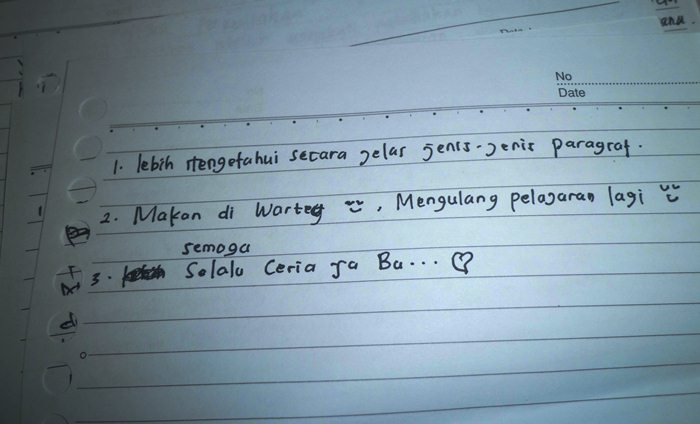 No
Date
1. lebih Mengetahui secara jelas jenis-jenis paragraf.
2. Makan di Warteg, Mengulang pelajaran lagi
semoga
3. Selalu Ceria ya Bu...